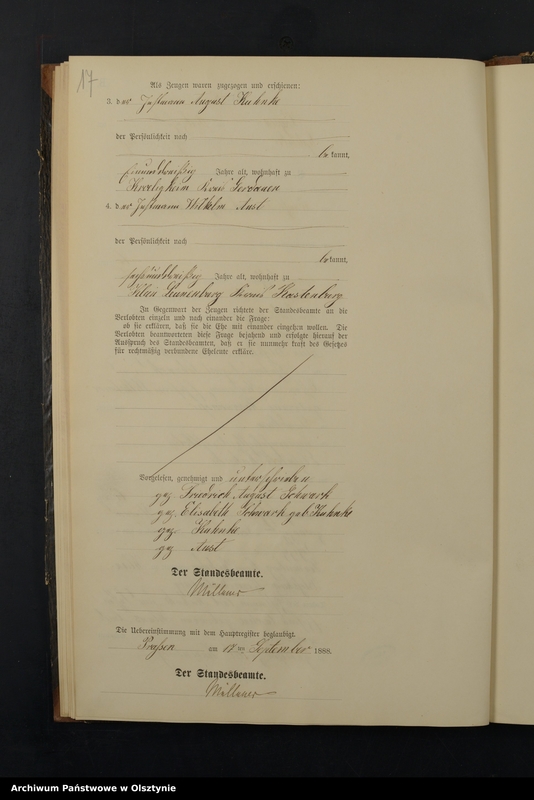 17
Als Zeugen waren zugezogen und erschienen:
3. der Instmann August Kuhnke
der Persönlichkeit nach
bekannt,
Jahre alt, wohnhaft zu
Kreis Gerdauen
4. der Instmann Wilhelm Aust
der Persönlichkeit nach
bekannt,
sechsunddreißig Jahre alt, wohnhaft zu
Leunenburg Kreis Rastenburg
In Gegenwart der Zeugen richtete der Standesbeamte an die
Verlobten einzeln und nach einander die Frage:
ob sie erklären, daß sie die Ehe mit einander eingehen wollen. Die
Verlobten beantworteten diese Frage bejahend und erfolgte hierauf der
Ausspruch des Standesbeamten, daß er sie nunmehr kraft des Gesetzes
für rechtmäßig verbundene Eheleute erkläre.
Vorgelesen, genehmigt und unterschrieben
gez. Friedrich August Schwark
gez. Elisabeth Schwark geb. Kuhnke
gez. Kuhnke
gez. Aust
Der Standesbeamte.
Die Uebereinstimmung mit dem Hauptregister beglaubigt.
Prassen am September 1888.
Der Standesbeamte.
Archiwum Państwowe w Olsztynie